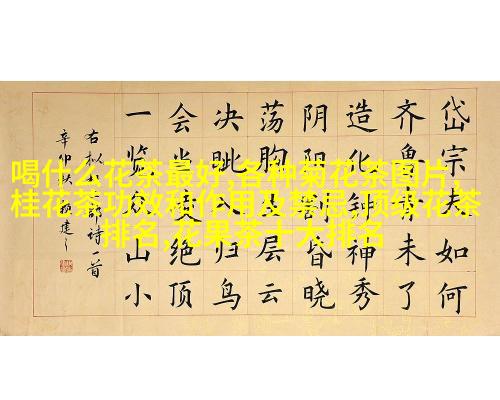 喝什么花茶最好,各种菊花茶图片,
桂花茶功效和作用及禁忌,顶级花茶
排名,花果茶十大排名
岱宗夫如何
齐鲁青未了
造化钟神秀
阴阳割昏晓
荡胸层云
决眦入归鸟
会当绝顶
一览众山小
右诗一首
辛卯